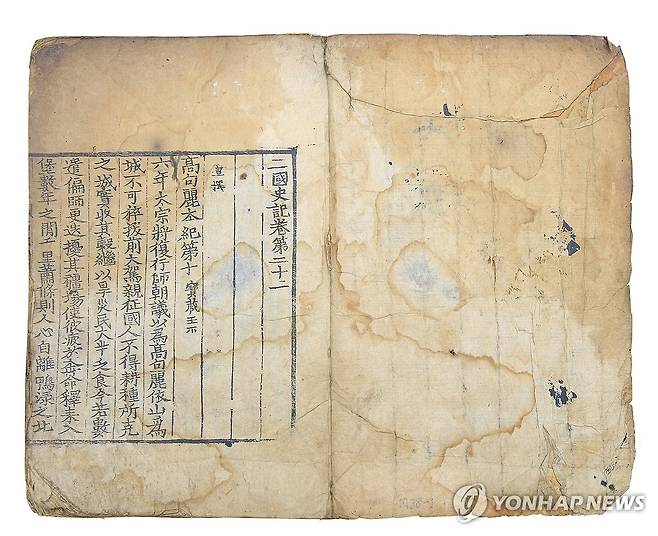 三國史記卷第二十二
宣撰
高句麗本紀第十 寶藏王下
六年太宗將復行師朝議以爲高句麗依山爲
城不可猝拔前大駕親征國人不得耕種所克
之城實收其穀繼以旱災民太半乏食今若數
遣偏師更迭擾其疆場使彼疲於奔命釋耒入
堡數年之間千里蕭條則人心自離鴨淥之北
YONHAP NEWS